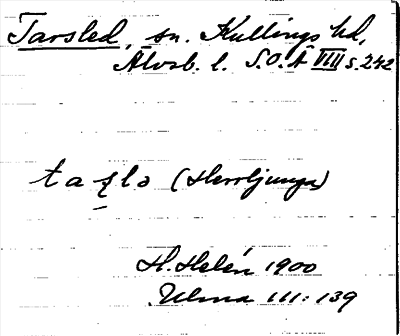 Tarsled, sn. Kullings hd,
Älvsb. l. S.O.Ä VIII s.242
taʂlə (Herrljunga)
H. Helén 1900
Ulma 111:139